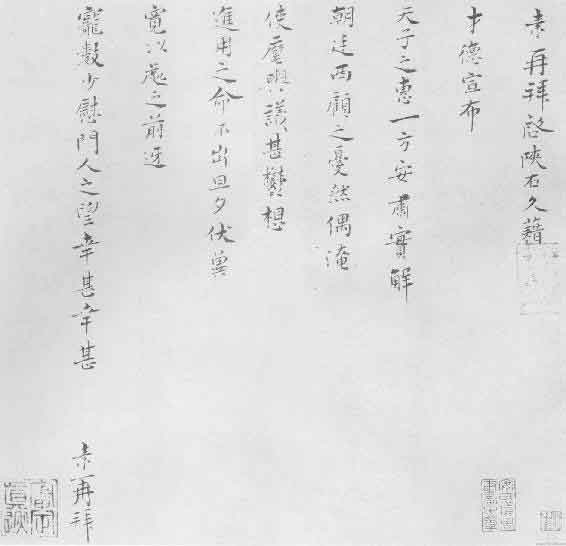 素再拜啓陝右久藉
才德宣布
天子之惠一方安肅實解
朝廷西顧之憂然偶淹
使麾輿議甚鬱想
進用之命不出旦夕伏冀
寬以處之前迓
寵數少慰門人之望幸甚幸甚
素再拜